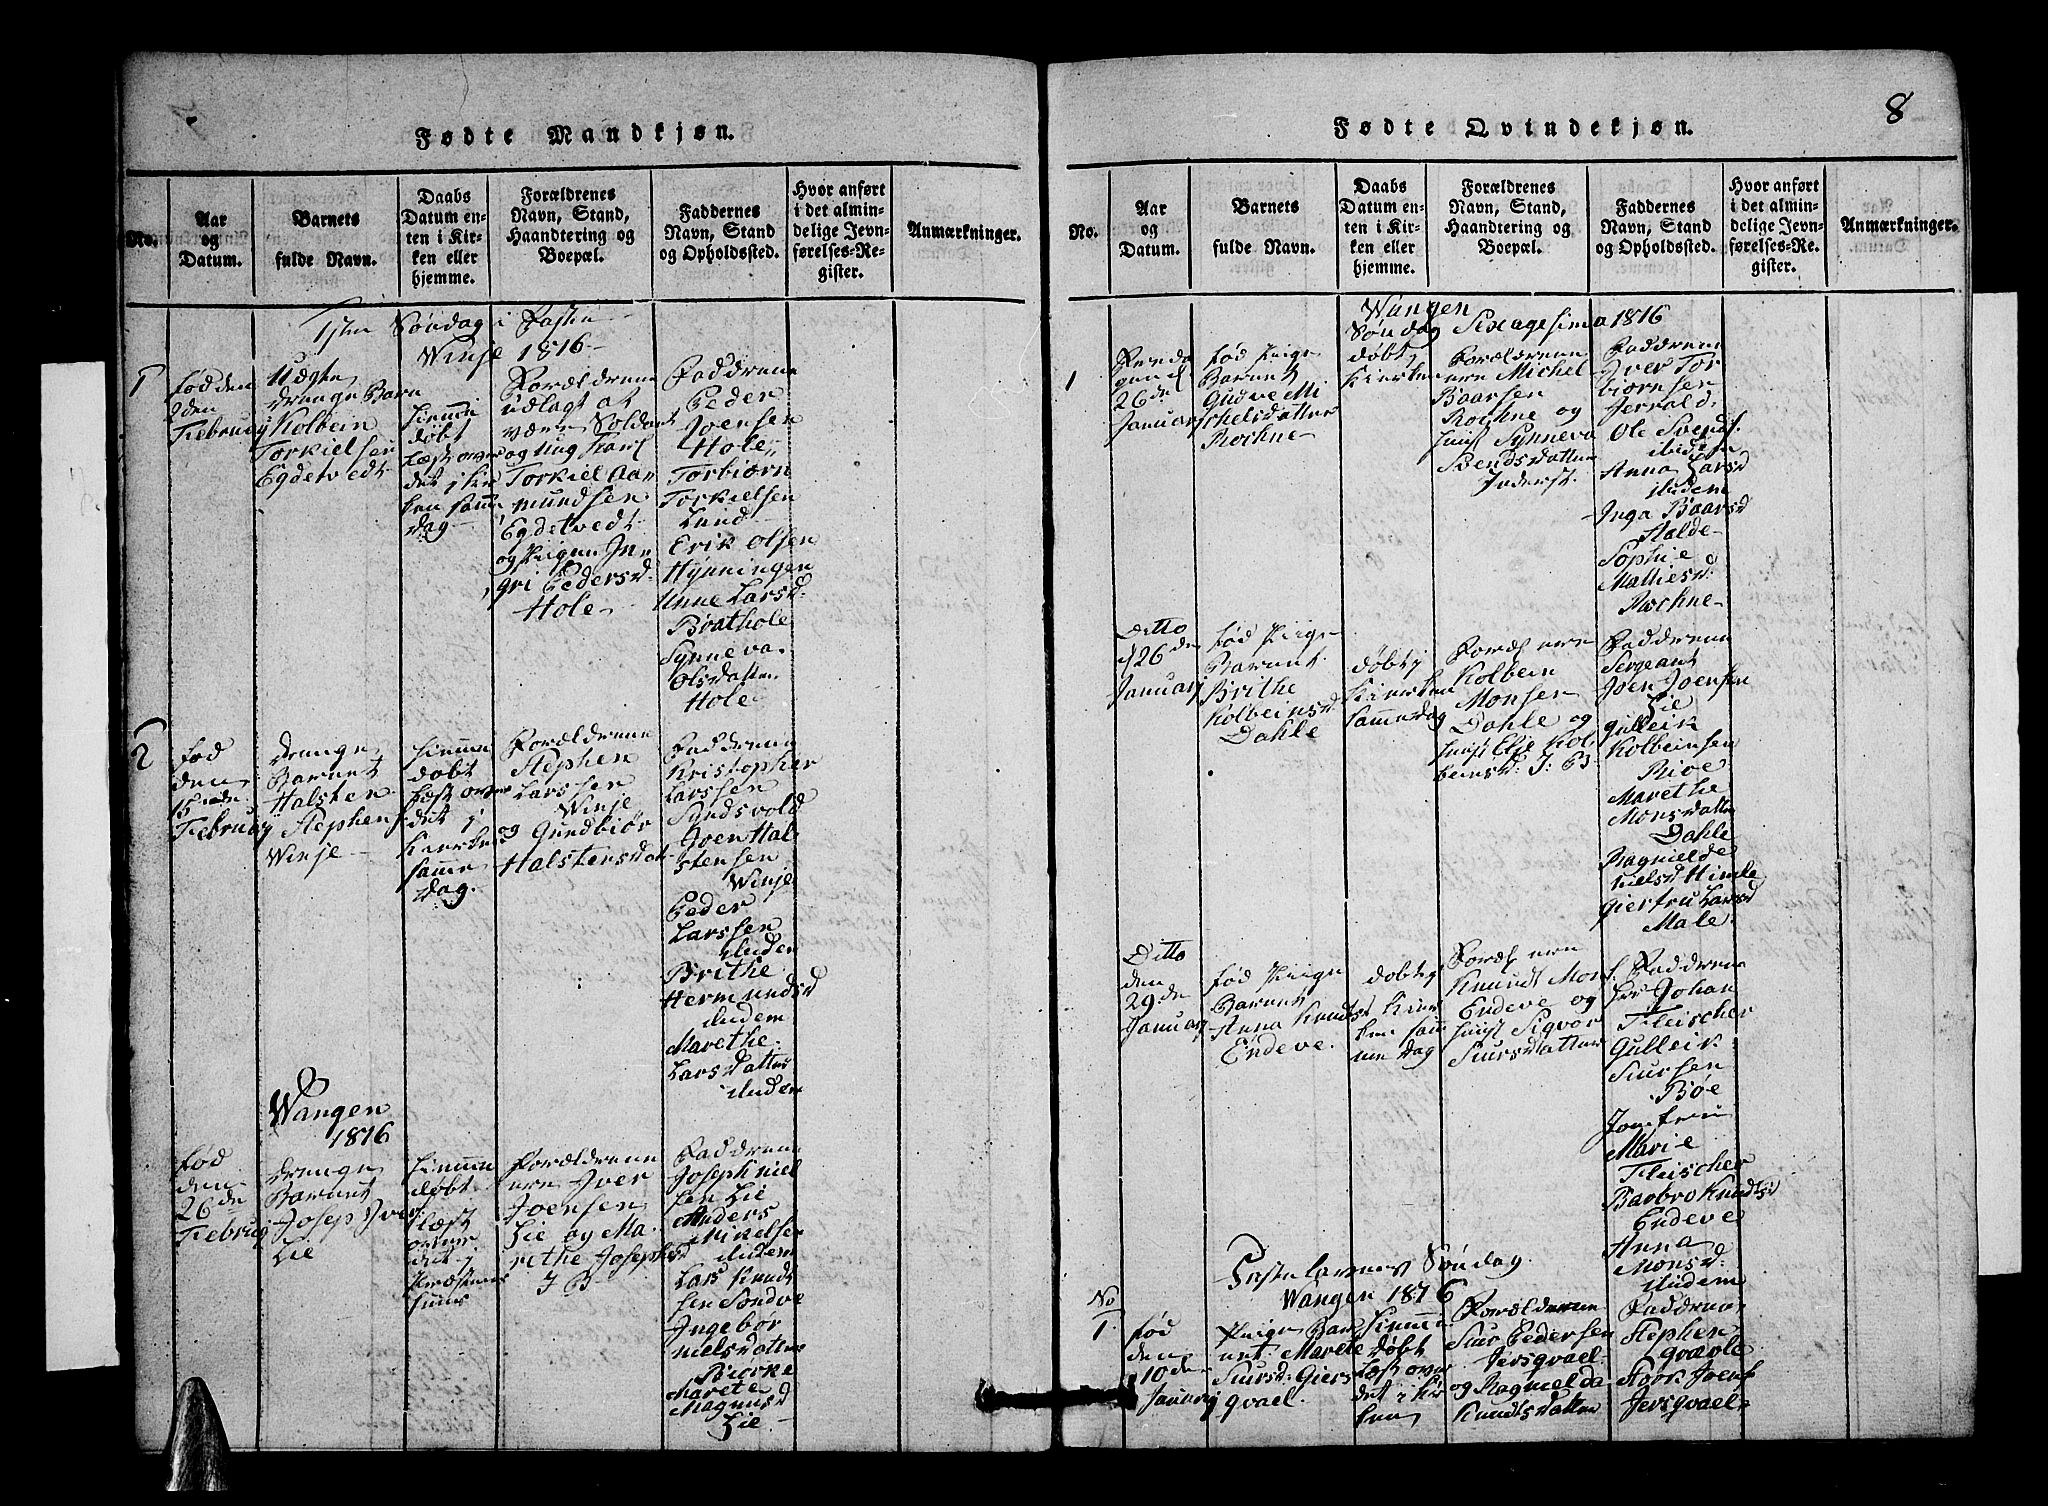 8
Fødte Mandkjøn.
No.
Aar
og
Datum.
Barnets
fulde Navn.
Daabs
Datum en-
ten i Kir-
ken eller
hjemme.
Forældrenes
Navn, Stand,
Haandtering og
Boepæl.
Faddernes
Navn, Stand
og Opholdssted.
Hvor anført
i det almin-
delige Jevn-
førelses-Re-
gister.
Anmærkninger.
1ste Søndag i Faste
Winje 1816
1
fød den
2den
Februarj
Uægte
drenge Barn
Kolbein
Torkielsen
Egdetvedt
hiemme
døbt
læst over
det i kir
ken samme
dag
Forældrene
udlagt at
være Soldat
og ung Karl
Torkiel Aa-
mundsen
Egdetvedt
og Pigen In-
gri Peders d.
Hole
Faddrene
Peder
Joensen
Hole
Torbiørn
Torkielsen
Lund
Erik Olsen
Hynningen
Anne Larsd:
Brathole
Synneva
Olsdatter
Hole
2
fød
den
15de
Februarj
drenge
Barnet
Halsten
Stephens.
Winje
hiemme
døbt
læst over
det i
kierken
samme
dag.
Forældrene
Stephen
Larssen
Winje
og Gundbiør
Halstensdatt
Faddrene
Kristopher
Larssen
Syndsvold
Iven Hal-
stensen
Winje
Peder
Larssen
ibidem
Brithe
Hermundsd
ibidem
Marethe
Larsdatter
ibidem
Wangen
1816
fød
den
26de
Februarj
drenge
Barnet
Josep Iver
Lie
hiemme
døbt
læst
over
det i
Præstens
huus
Forældrene
ere Iver
Joensen
Lie og Ma-
rethe Josephsd
I B
Faddrene
Joseph Niel
sen Lie
Anders
Mikelsen
ibidem
Lars Knudt
sen Sondve
Ingebor
Nielsdatter
Biørke
Marete
Magnusd
Lie
Fødte Qvindekjøn.
No.
Aar
og
Datum.
Barnets
fulde Navn.
Daabs
Datum en-
ten i Kir-
ken eller
hjemme.
Forældrenes
Navn, Stand,
Haandtering og
Boepæl.
Faddernes
Navn, Stand
og Opholdssted.
Hvor anført
i det almin-
delige Jevn-
førelses-Re-
gister.
Anmærkninger.
Wangen
Søndag Sexagesima 1816
1
26de
Januarj
fød Pige
Barnet
Gudve Mi
chelsdatter
Rochne
døbt i
kierken
Forældrene
ere Michel
Baarsen
Rochne og
hust Synneva
Svendsdatter
Faddrene
Iver Tor
biørnsen
Jerrald
Ole Svends.
ibidem
Anna Larsd
ibidem
Inga Baarsd
Halde
Sophie
Mathiesd:
Rochne
Ditto
d 26den
Januarj
fød Pige
Barnet
Brithe
Kolbeinsd
Dahle
døbt i
kierken
samme dag
Foræl ere
Kolbein
Monsen
Dahle og
hust Elie Kol
beinsd: I: B
Faddrene
Sergeant
Joen Joensen
Lie
Gulleik
Kolbeinsen
Riøe
Marethe
Monsdatter
Dahle
Ragnielde
Nielsd Himle
Giertru Larsd
Male
Ditto
den
29de
Januarj
fød Pige
Barnet
Anna Knudtsd
Endeve.
døbt i
Kier
ken sam
me dag
Foræl ere
Knundt Mons.
Endeve og
hust Sigvor
Siursdatter
Faddrene
Hr Johan
Fleischer
Gulleik
Siursen
Bøe
Jomfru
Marie
Fleischer
Barbro Knudtsd
Endeve
Anna
Monsd:
ibidem
Fastelavens Søndag
Wangen 1816
No
1.
fød
den
10de
Januarj
Pige Bar
net Marete
Siursd: Giers
qvael.
hiemme
døbt
læst over
det i kir
ken
Forældrene
Siur Pedersen
Jersqvael
og Ragnielda
Knudtsdatter
Faddrene
Stephen
Gravle
Stork Joens
Jersqvael